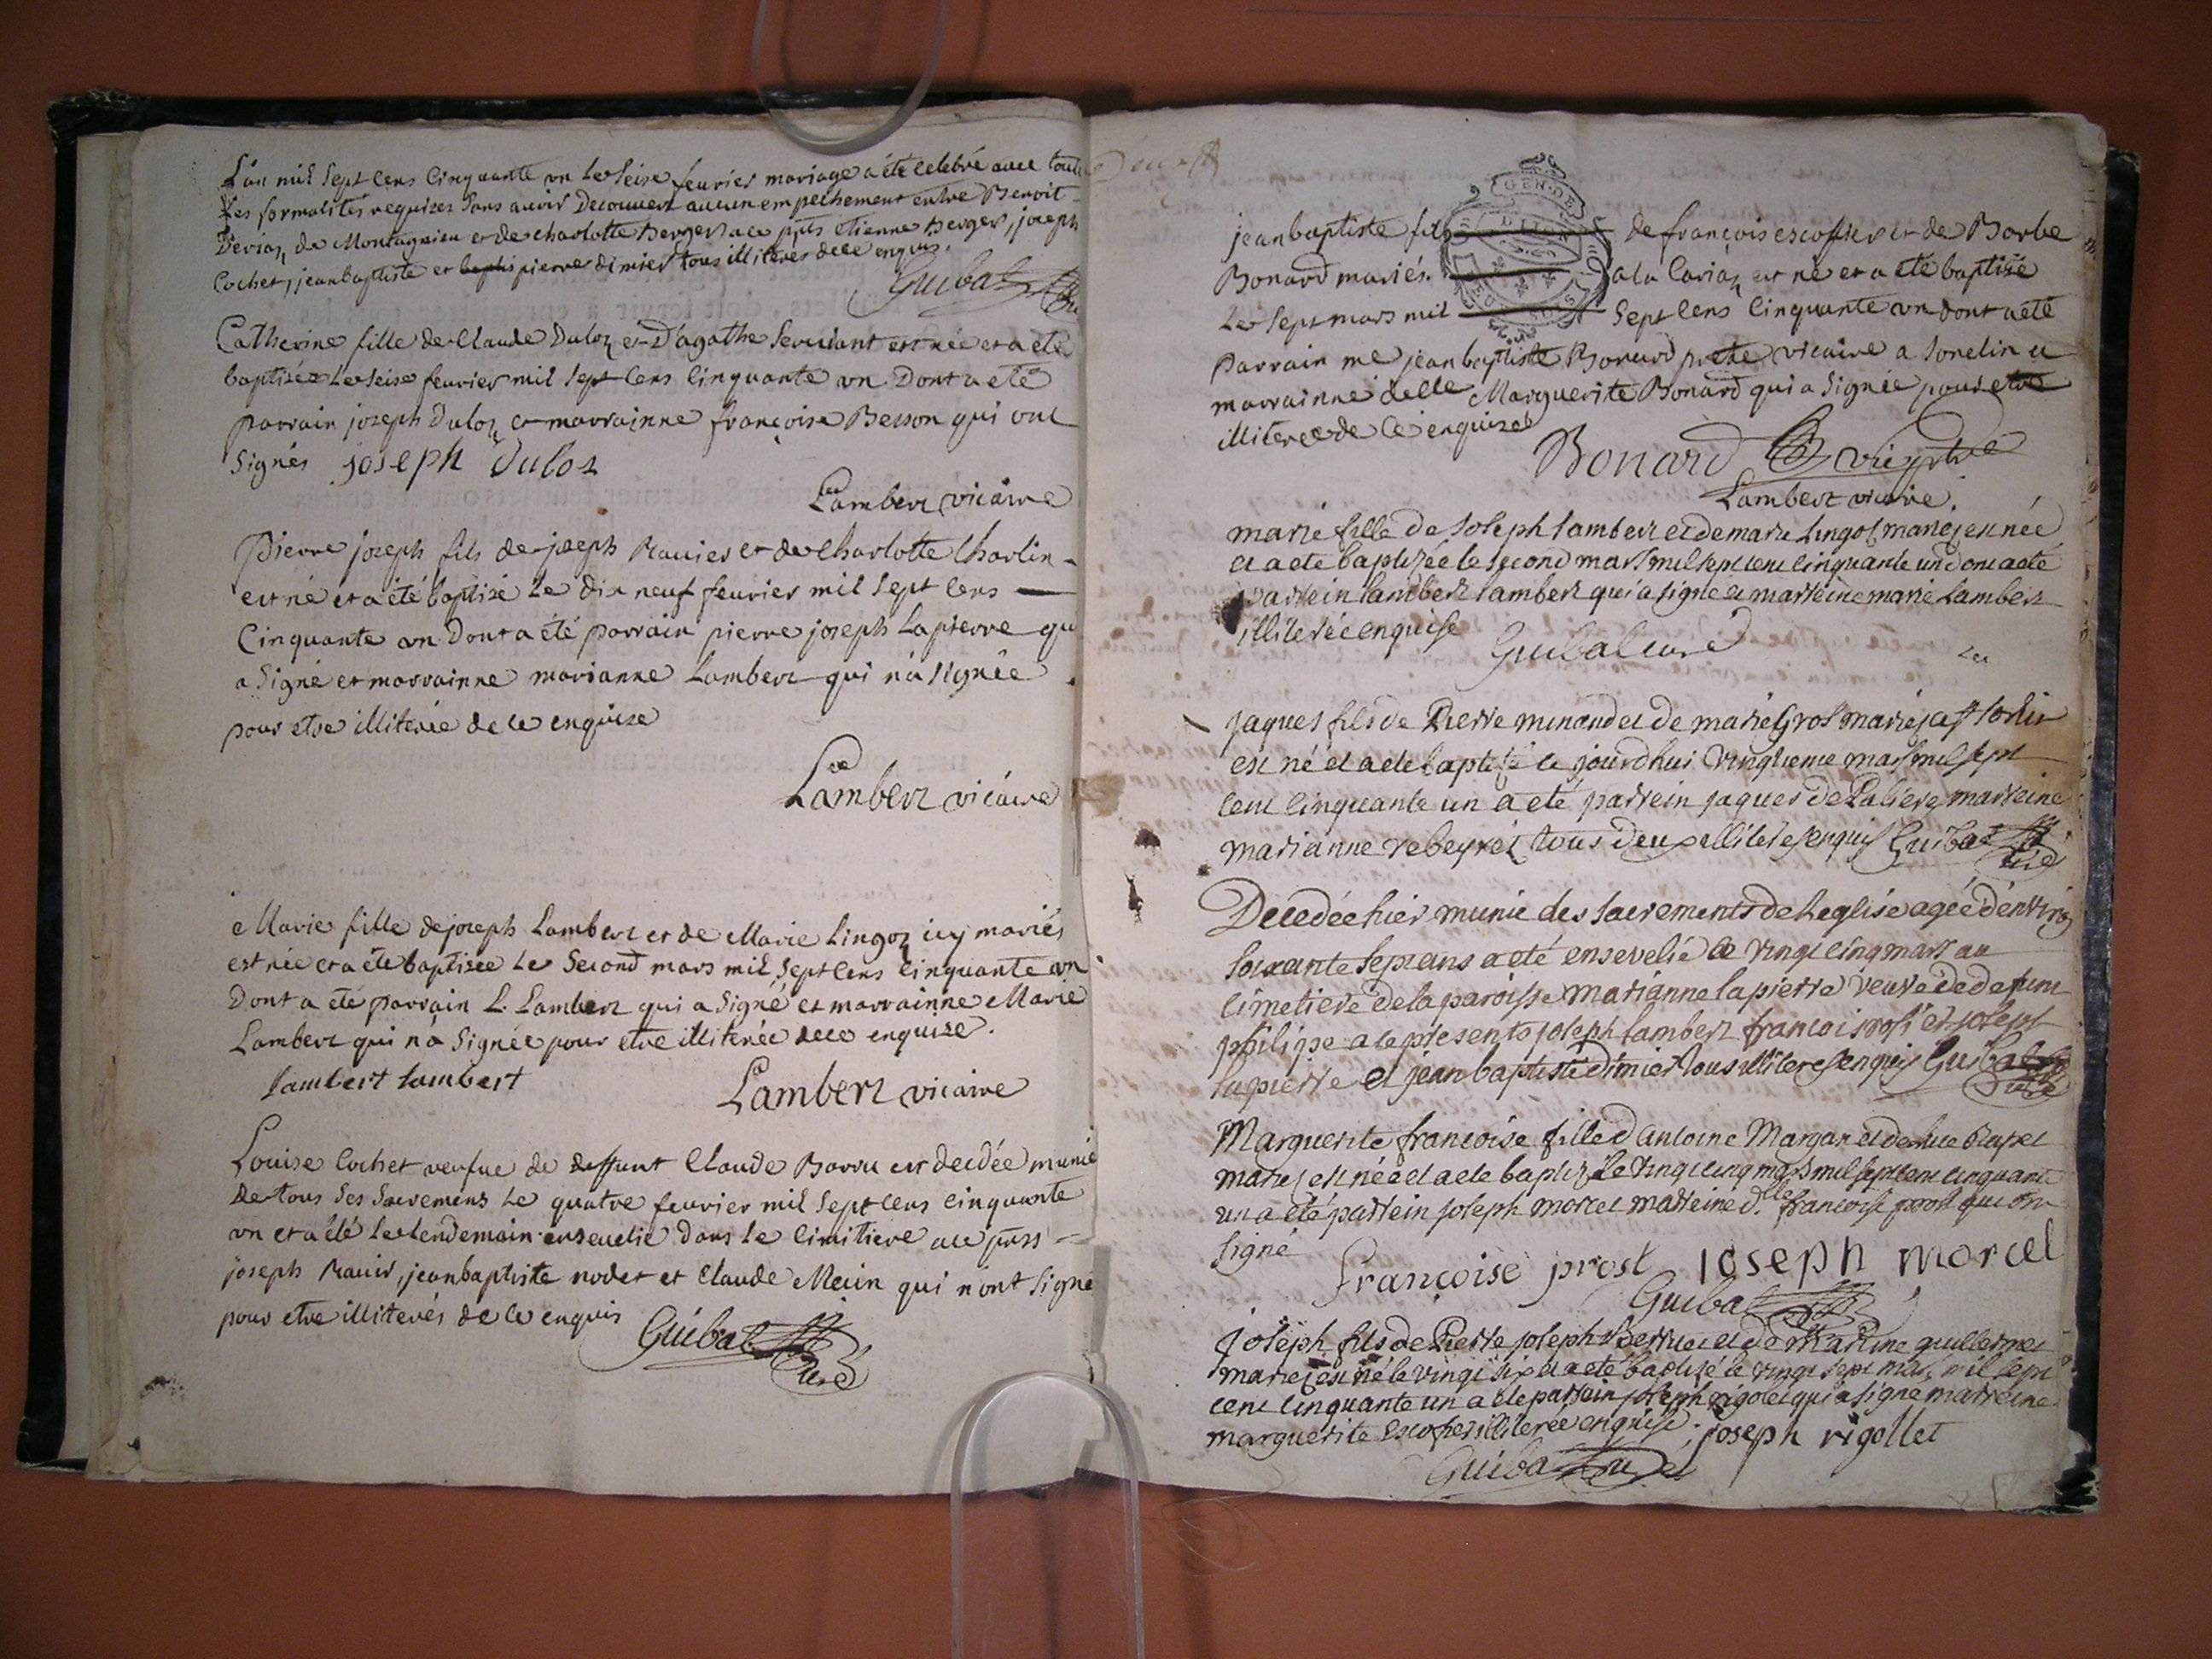 L'an mil sept cens cinquante un le seise feurier mariage a été celebré avec toute
les formalités requizes sans avoir decouvert aucun empechement entre Benoit
de Montagnieu et de charlotte Berger a ce pnts etienne Berger, joseph
Cochet, jean baptiste et pierre dimier tous illiteres de ce enquis.
Guibal
Catherine fille de Claude Duloz et D'agathe Servdant est née et a été
baptizée le seise feurier mil sept cens cinquante un Dont a eté
parrain joseph Duloz et marrainne françoise Besson qui ont
signés joseph duloz
Lambert vicaire
Pierre joseph fils de joseph Rauier et de Charlotte Charlin
est né et a été baptizé le dix neuf feurier mil sept cens
Cinquante un Dont a été parrain pierre joseph Lapierre qu
a signé et marrainne marianne Lambert qui n'a signée
pour etre illiterée de ce enquise
Lambert vicaire
Marie fille de joseph Lambert et de Marie Lingot icy mariés
est née et a été baptisée le Second mars mil sept cens cinquante un
Dont a été parrain L. Lambert qui a signé et marrainne Marie
Lambert qui n'a signée pour etre illiterée de ce enquize.
lambert lambert
Lambert vicaire
Louise Cochet veufue de deffunt Claude Barru est decédée munie
de tous ses sacremens le quatre feurier mil sept cens cinquante
un et a été le lendemain enseuelie dans le cimitiere a ce pnts
joseph Rauier, jean baptiste nodet et Claude Mein qui n'ont signé
pour etre illiterés de ce enquis
Guibal curé
GEN. DE
jean baptiste fils de françois escoffier et de Barbe
Bonard mariés a la est né et a été baptizé
le sept mars mil sept cens cinquante un dont a été
parrain me jean baptiste Bonard pretre vicaire a sonclin et
marrainne delle Marguerite Bonard qui a signée pour etre
illiterée de ce enquizée
Bonard vic ptre
Lambert vicaire.
marie fille de Joseph lambert et de marie Lingot mariez est née
et a été baptizée le second mars mil sept cent cinquante un dont a eté
parrein lambert lambert qui a signé et marreine marie Lambert
illiterée enquise
Guibal curé
Les
jaques fils de Pierre minaud et de marie Gros mariez
est né et a eté baptisé ce jourdhui vingtieme mars mil sept
cent cinquante un a eté parrein jaques de marreine
marianne rebeyret tous deux illiteres enquis Guibal curé
Decedée hier munie des sacrements de leglise agée d'environ
soixante sept ans a eté ensevelie ce vingt cinq mars au
cimetiere de la paroisse marianne lapierre veuve de defunt
philippe a ce presents joseph lambert francois et joseph
lapierre et jean baptiste dimier tous illiteres enquis Guibal curé
Marguerite francoise fille d'antoine Margan et de
mariez est née et a eté baptizée le vingt cinq mars mil sept cent cinquante
un a été parrein joseph morcel marreine dlle francoise prost qui ont
signé
françoise prost joseph morcel
Guibal
Joseph fils de Pierre joseph et de martine guillermet
mariez est né le vingt six et a eté baptisé le vingt sept mars mil sept
cent cinquante un a eté parrein joseph rigolet qui a signé marreine
marguerite Escofier illiterée enquise. joseph rigollet
Guibal curé